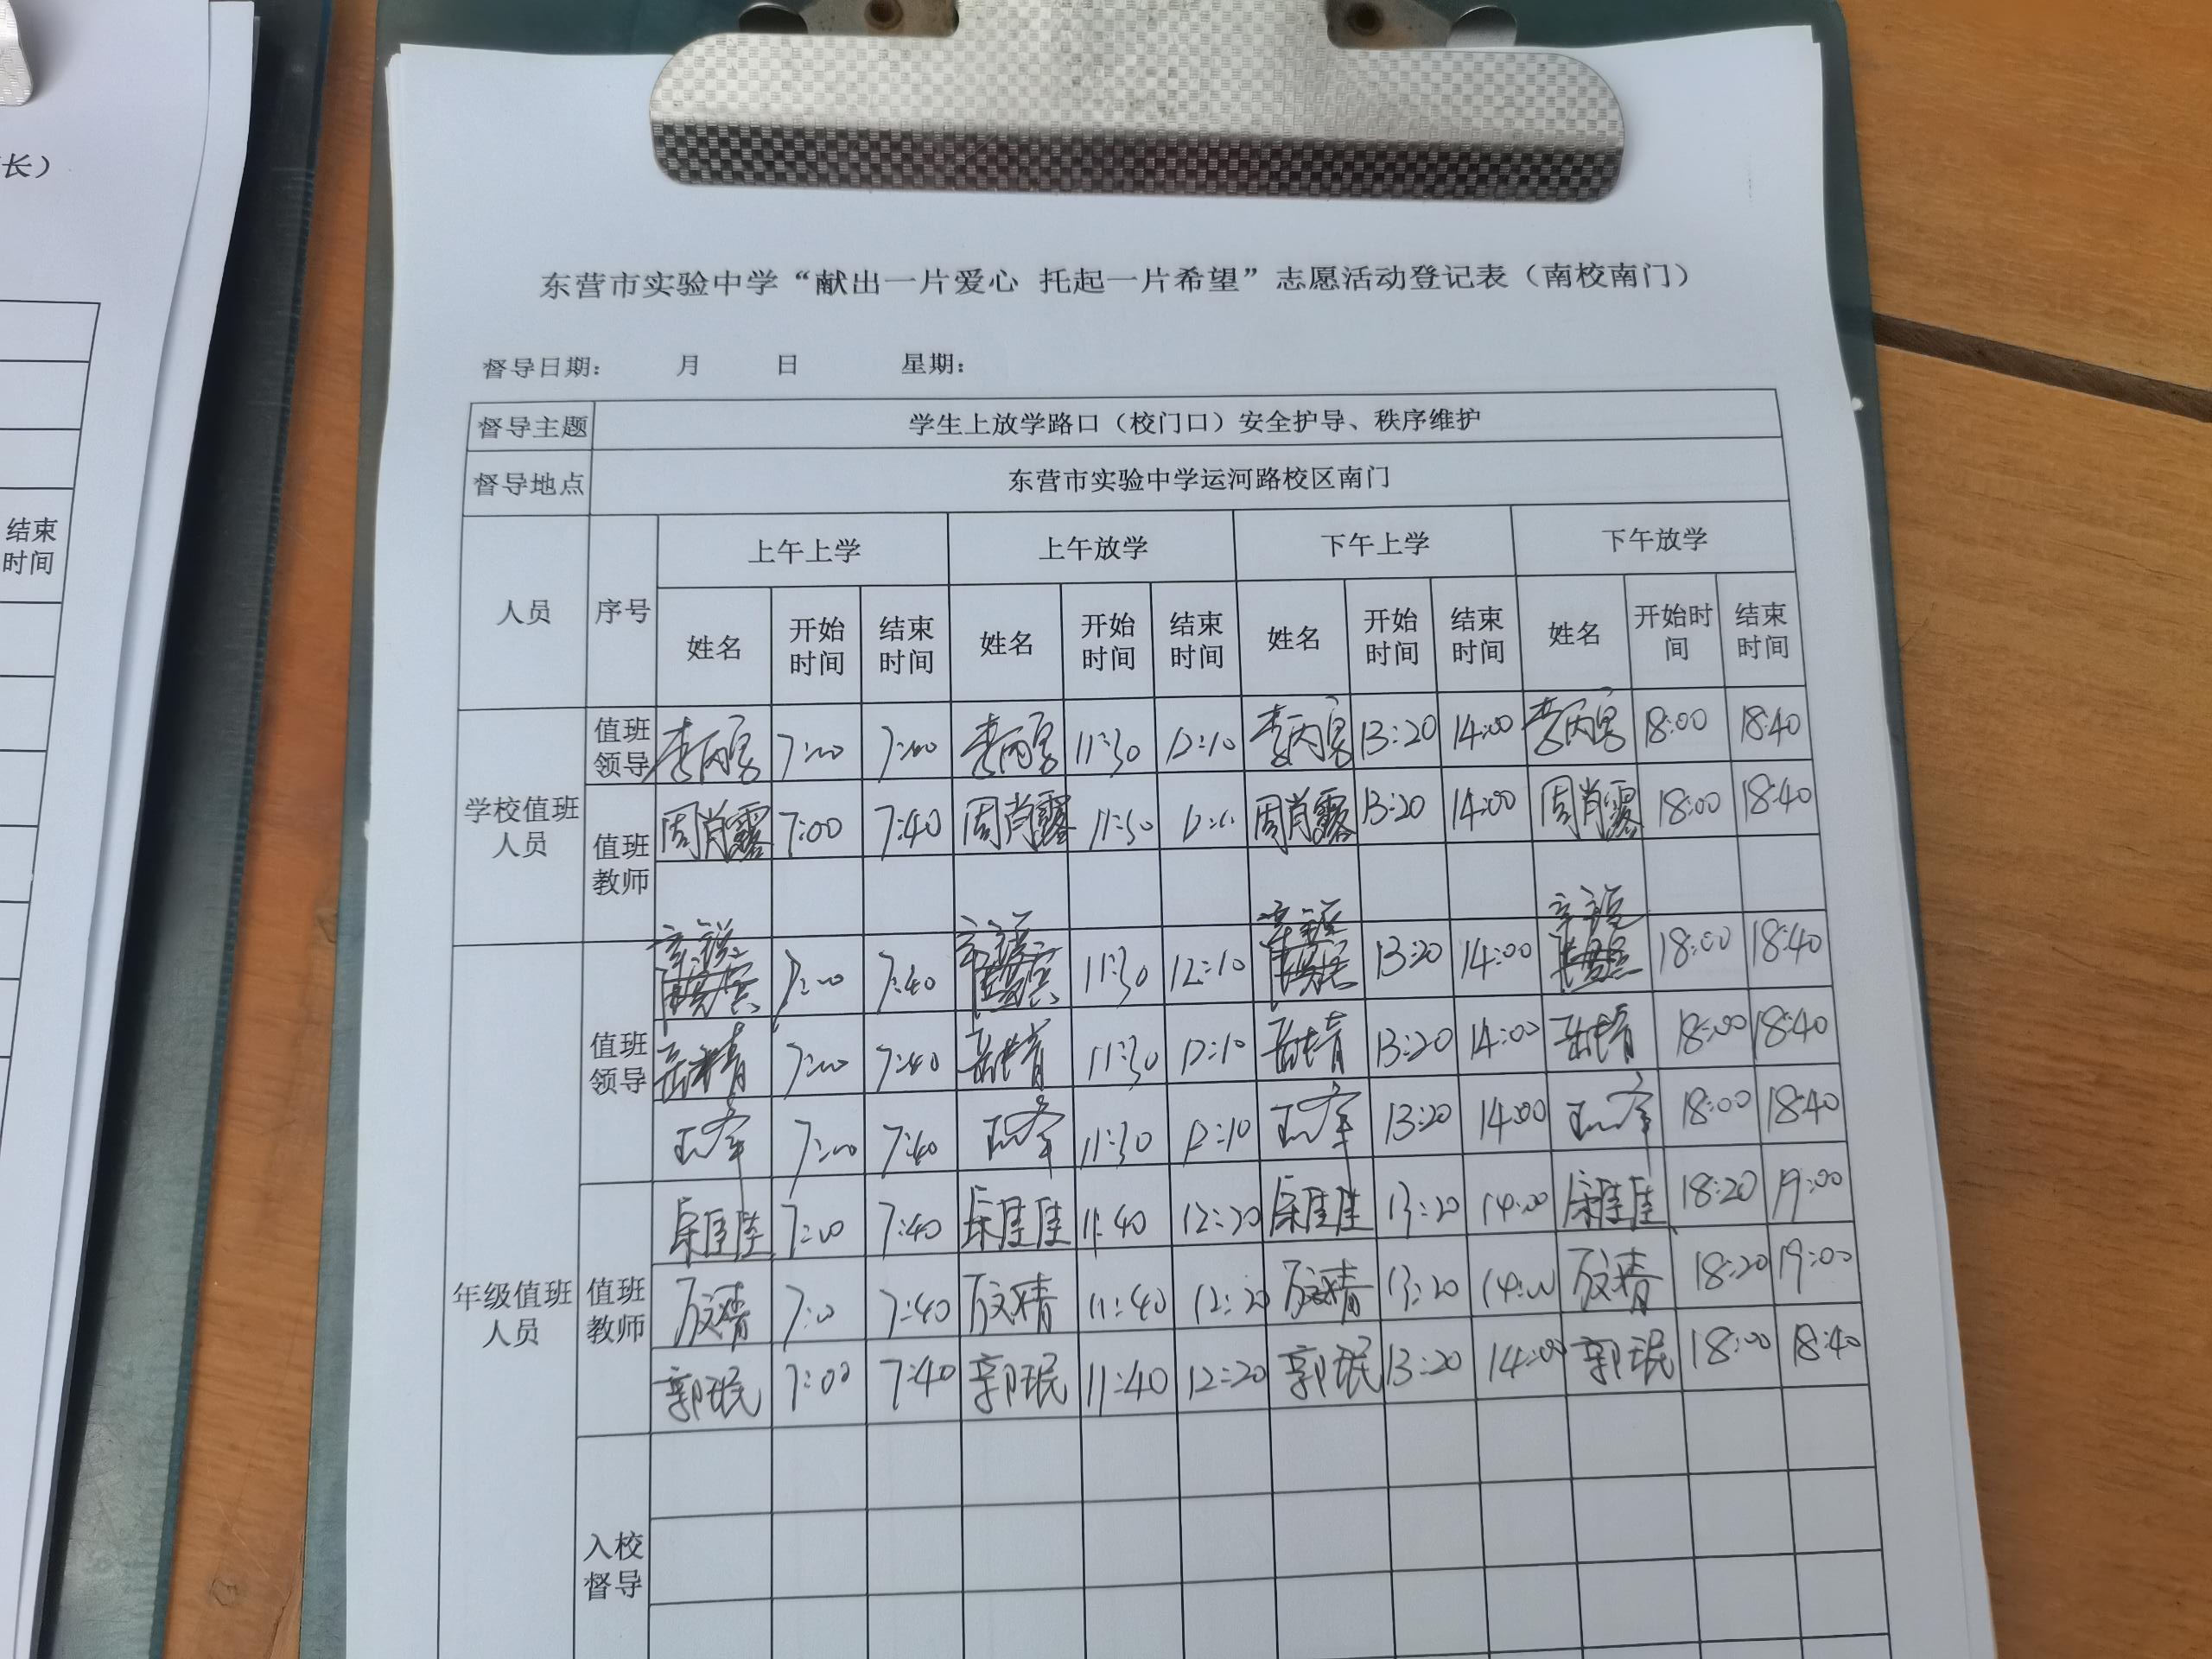 长）
结束
时间
东营市实验中学“献出一片爱心 托起一片希望”志愿活动登记表（南校南门）
督导日期： 月 日 星期：
督导主题 学生上放学路口（校门口）安全护导、秩序维护
督导地点 东营市实验中学运河路校区南门
人员 序号 上午上学 上午放学 下午上学 下午放学
姓名 开始时间 结束时间 姓名 开始时间 结束时间 姓名 开始时间 结束时间 姓名 开始时间 结束时间
学校值班人员
值班领导 7:00 11:30 12:10 13:20 14:00 18:00 18:40
值班教师 周肖露 7:00 7:40 周肖露 11:30 周肖露 13:20 14:00 周肖露 18:00 18:40
年级值班人员
值班领导
7:00 7:40 11:30 12:10 13:20 14:00 18:00 18:40
7:00 7:40 11:30 12:10 13:20 14:00 18:00 18:40
7:00 7:40 11:30 12:10 13:20 14:00 18:00 18:40
值班教师
7:00 7:40 11:40 12:20 13:20 14:00 18:20 19:00
7:00 7:40 11:40 12:20 13:20 14:00 18:20 19:00
郭珉 7:00 7:40 郭珉 11:40 12:20 郭珉 13:20 14:00 郭珉 18:00 18:40
入校督导